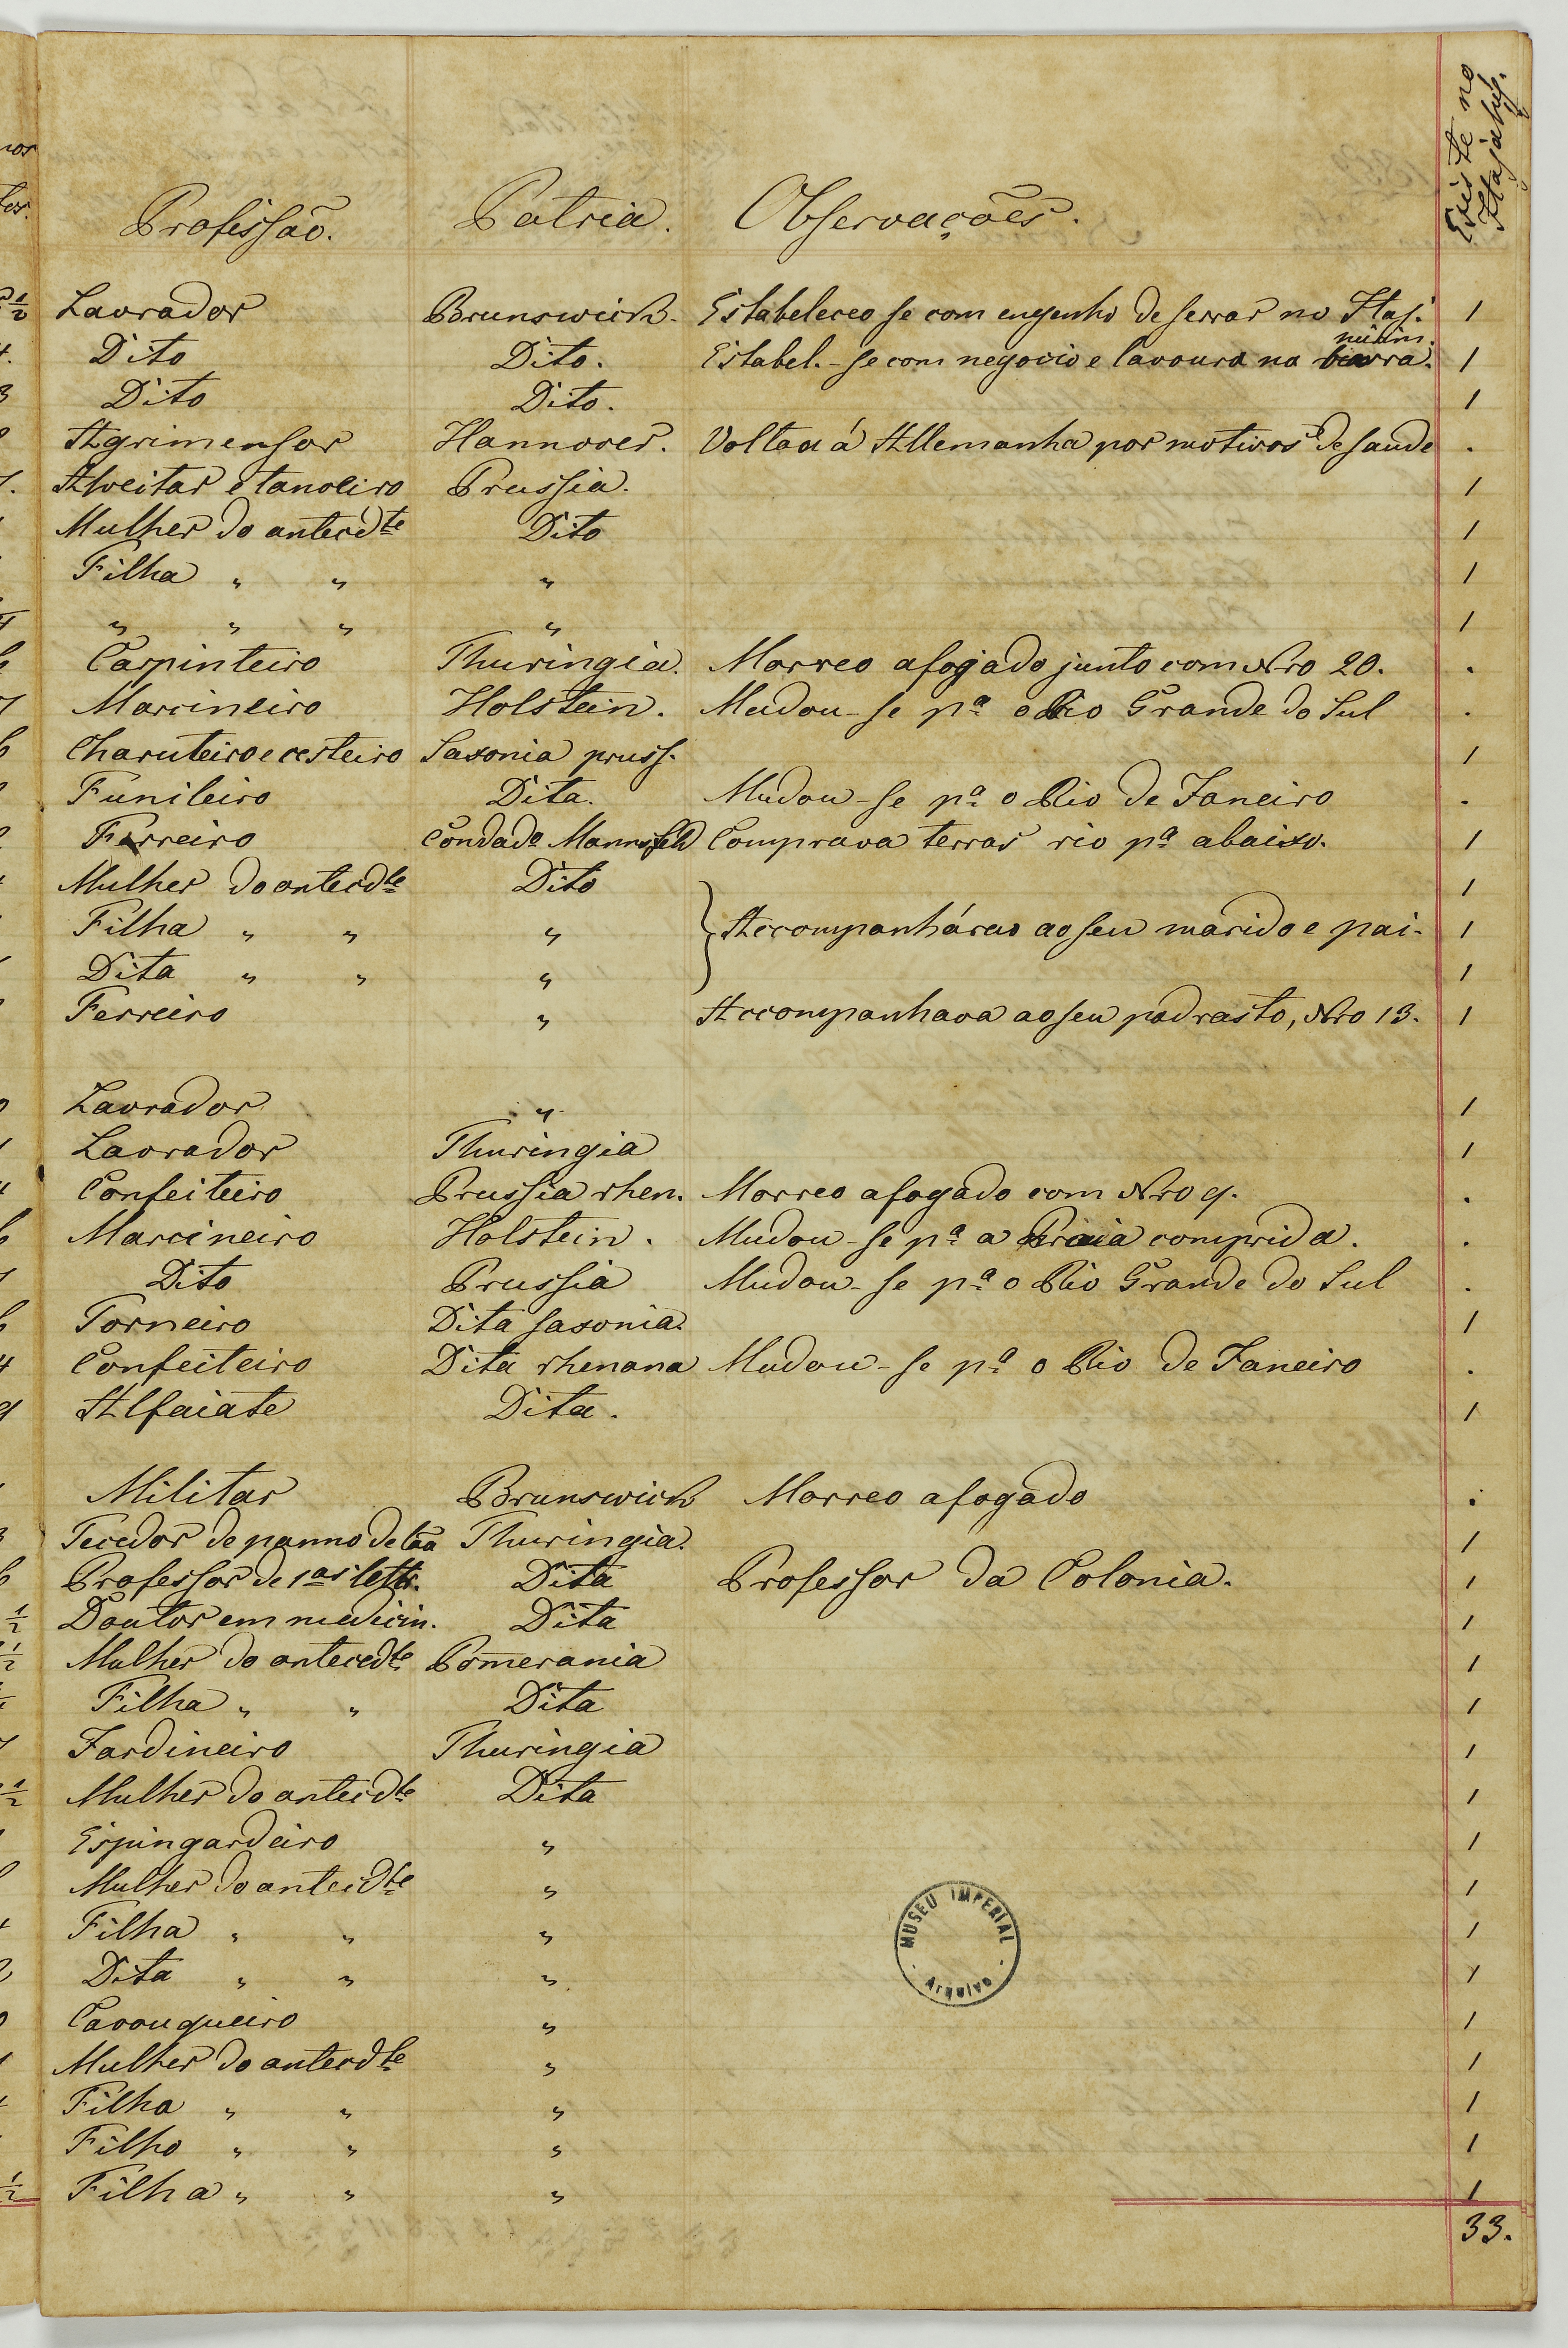 Existe no
Itajahy.
Profissão. Patria. Observações.
Lavrador Brunswick. Estabeleceo se com engenho de serrar no Itaj.
mirim.
Dito Dito. Estabel.-se com negocio e lavoura na barra. 1
Dito Dito. 1
Agrimensor Hannover. Voltou á Allemanha por motivos de saude .
Alveitar e tanoeiro Prussia. 1
Mulher do antecdte Dito 1
Filha " " " 1
" " " " 1
Carpinteiro Thuringia. Morreo afogado junto com Nro 20. .
Marcineiro Holstein. Mudou-se pa o Rio Grande do Sul .
Charuteiro e cesteiro Saxonia pruss. 1
Funileiro Dita. Mudou-se pa o Rio de Janeiro .
Ferreiro Condado Mannsfeld Comprava terras rio pa abaixo. 1
Mulher do antecdte Dito 1
Filha " " " Accompanhárao ao seu marido e pai. 1
Dita " " " 1
Ferreiro " Accompanhava ao seu padrasto, Nro 13. 1
Lavrador " 1
Lavrador Thuringia 1
Confeiteiro Prussia rhen. Morreo afogado com Nro 9. .
Marcineiro Holstein. Mudou-se pa a Praia comprida. .
Dito Prussia Mudou-se pa o Rio Grande do Sul .
Torneiro Dita saxonia. 1
Confeiteiro Dita rhenana Mudou-se pa o Rio de Janeiro .
Alfaiate Dita. 1
Militar Brunswick Morreo afogado .
Tecedor de panno de lãa Thuringia. 1
Professor de 1as lettr. Dita Professor da Colonia. 1
Doutor em medicin. Dita 1
Mulher do antecedte Pommerania 1
Filha " " Dita 1
Jardineiro Thuringia 1
Mulher do antecdte Dita 1
Espingardeiro " 1
Mulher do antecdte " 1
Filha " " " 1
Dita " " " 1
Cavouqueiro " 1
Mulher do antecdte " 1
Filha " " " 1
Filho " " " 1
Filha " " " 1
33.
MUSEU IMPERIAL
Arquivo